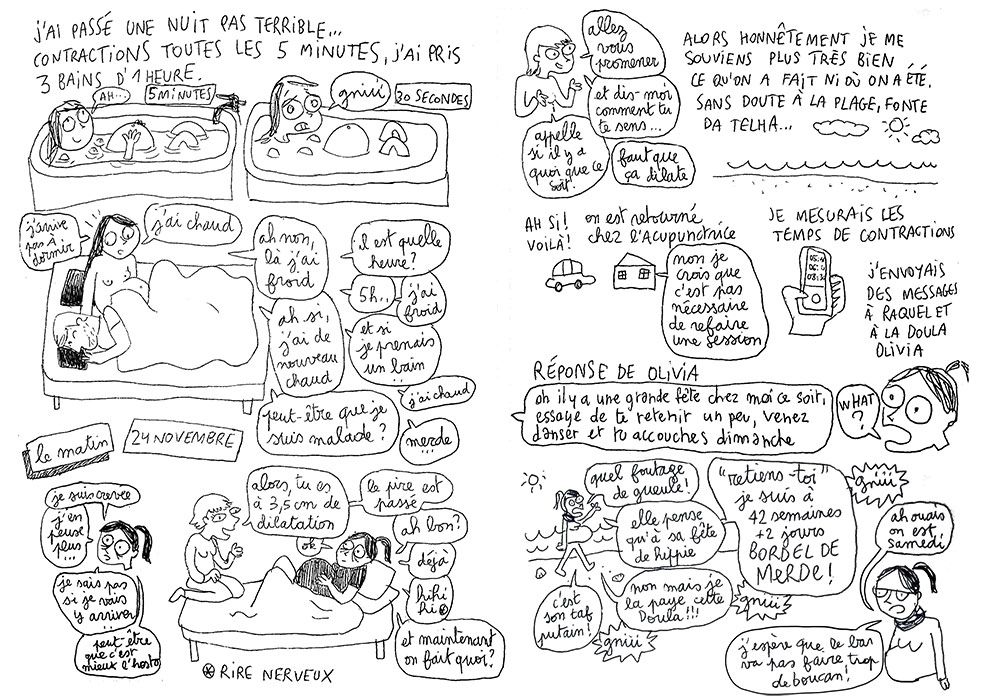 J'AI PASSÉ UNE NUIT PAS TERRIBLE...
CONTRACTIONS TOUTES LES 5 MINUTES, J'AI PRIS
3 BAINS D'1 HEURE.
AH...
5 MINUTES
gniii
30 SECONDES
j'arrive
pas à
dormir
j'ai chaud
ah non,
là j'ai
froid
il est quelle
heure?
5h..
j'ai
froid
ah si,
j'ai de
nouveau
chaud
et si
je prenais
un bain
...
j'ai chaud
peut-être que je
suis malade?
merde
le matin
24 NOVEMBRE
je suis crevée
j'en
peux
plus
...
je sais pas
si je vais
y arriver
peut-être
que c'est
mieux l'hosto
alors, tu es
à 3,5 cm de
dilatation
ok
le pire est
passé
ah bon?
déjà
hihi
hi ⊛
et maintenant
on fait quoi?
⊛ RIRE NERVEUX
allez
vous
promener
et dis-moi
comment tu
te sens...
appelle
si il y a
quoi que ce
soit!
faut que
ça dilate
ALORS HONNÊTEMENT JE ME
SOUVIENS PLUS TRÈS BIEN
CE QU'ON A FAIT NI OÙ ON A ÉTÉ.
SANS DOUTE À LA PLAGE, FONTE
DA TELHA...
AH SI!
VOILÀ!
on est retourné
chez l'Acupunctrice
non je
crois que
c'est pas
nécessaire
de refaire
une session
JE MESURAIS LES
TEMPS DE CONTRACTIONS
J'ENVOYAIS
DES MESSAGES
À RAQUEL ET
À LA DOULA
OLIVIA
RÉPONSE DE OLIVIA
oh il y a une grande fête chez moi ce soir,
essaye de te retenir un peu, venez
danser et tu accouches dimanche
WHAT
?
quel foutage
de gueule!
elle pense
qu'à sa fête
de hippie
c'est
son taf
putain!
non mais je
la paye cette
Doula!!!
gniii
"retiens-toi"
je suis à
42 semaines
+2 jours
BORDEL DE
MERDE!
gniii
gniii
ah ouais
on est
samedi
j'espère que le bar
va pas faire trop
de boucan!